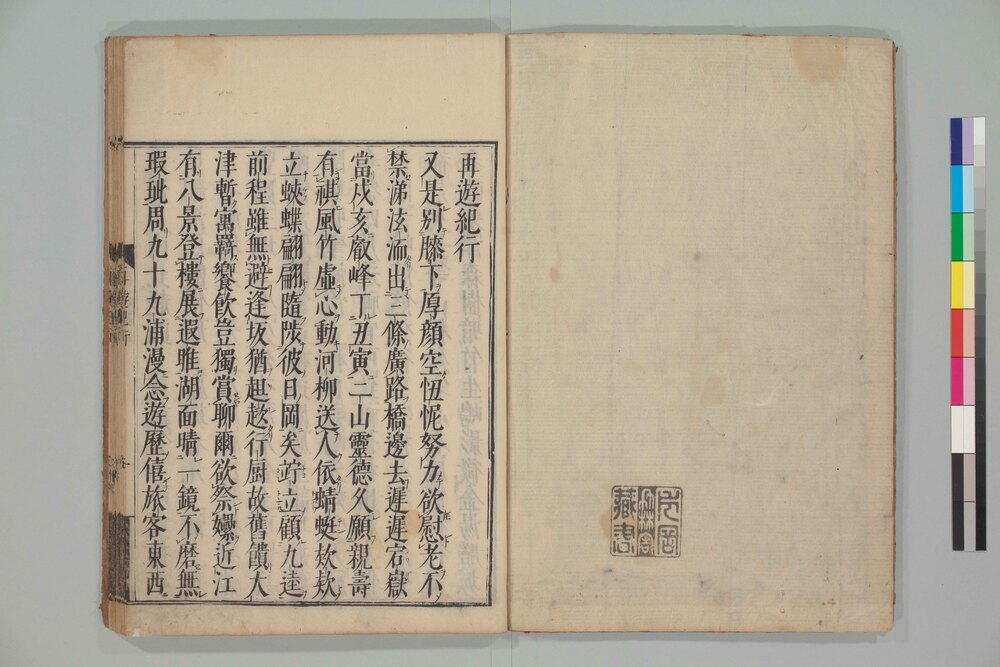 再遊紀行
又是別膝下厚顏空忸怩努力欲慰老不
禁涕泫洏出三條廣路橋邊去遲遲宕嶽
當戌亥叡峰丁丑寅二山靈德久願親壽
有祺風竹虛心動河柳送人依蜻蜓欻欻
立蛺蝶翩翩隨陟彼日岡矣竚立顧九逵
前程雖無避逢坂猶趑趄行厨故舊饋大
津暫寓羈饗飲豈獨賞聊爾欲祭㜸近江
有八景登樓展遐睢湖面晴一鏡不磨無
瑕玼周九十九浦漫念遊歷僖旅客東西
再遊紀行
藏書